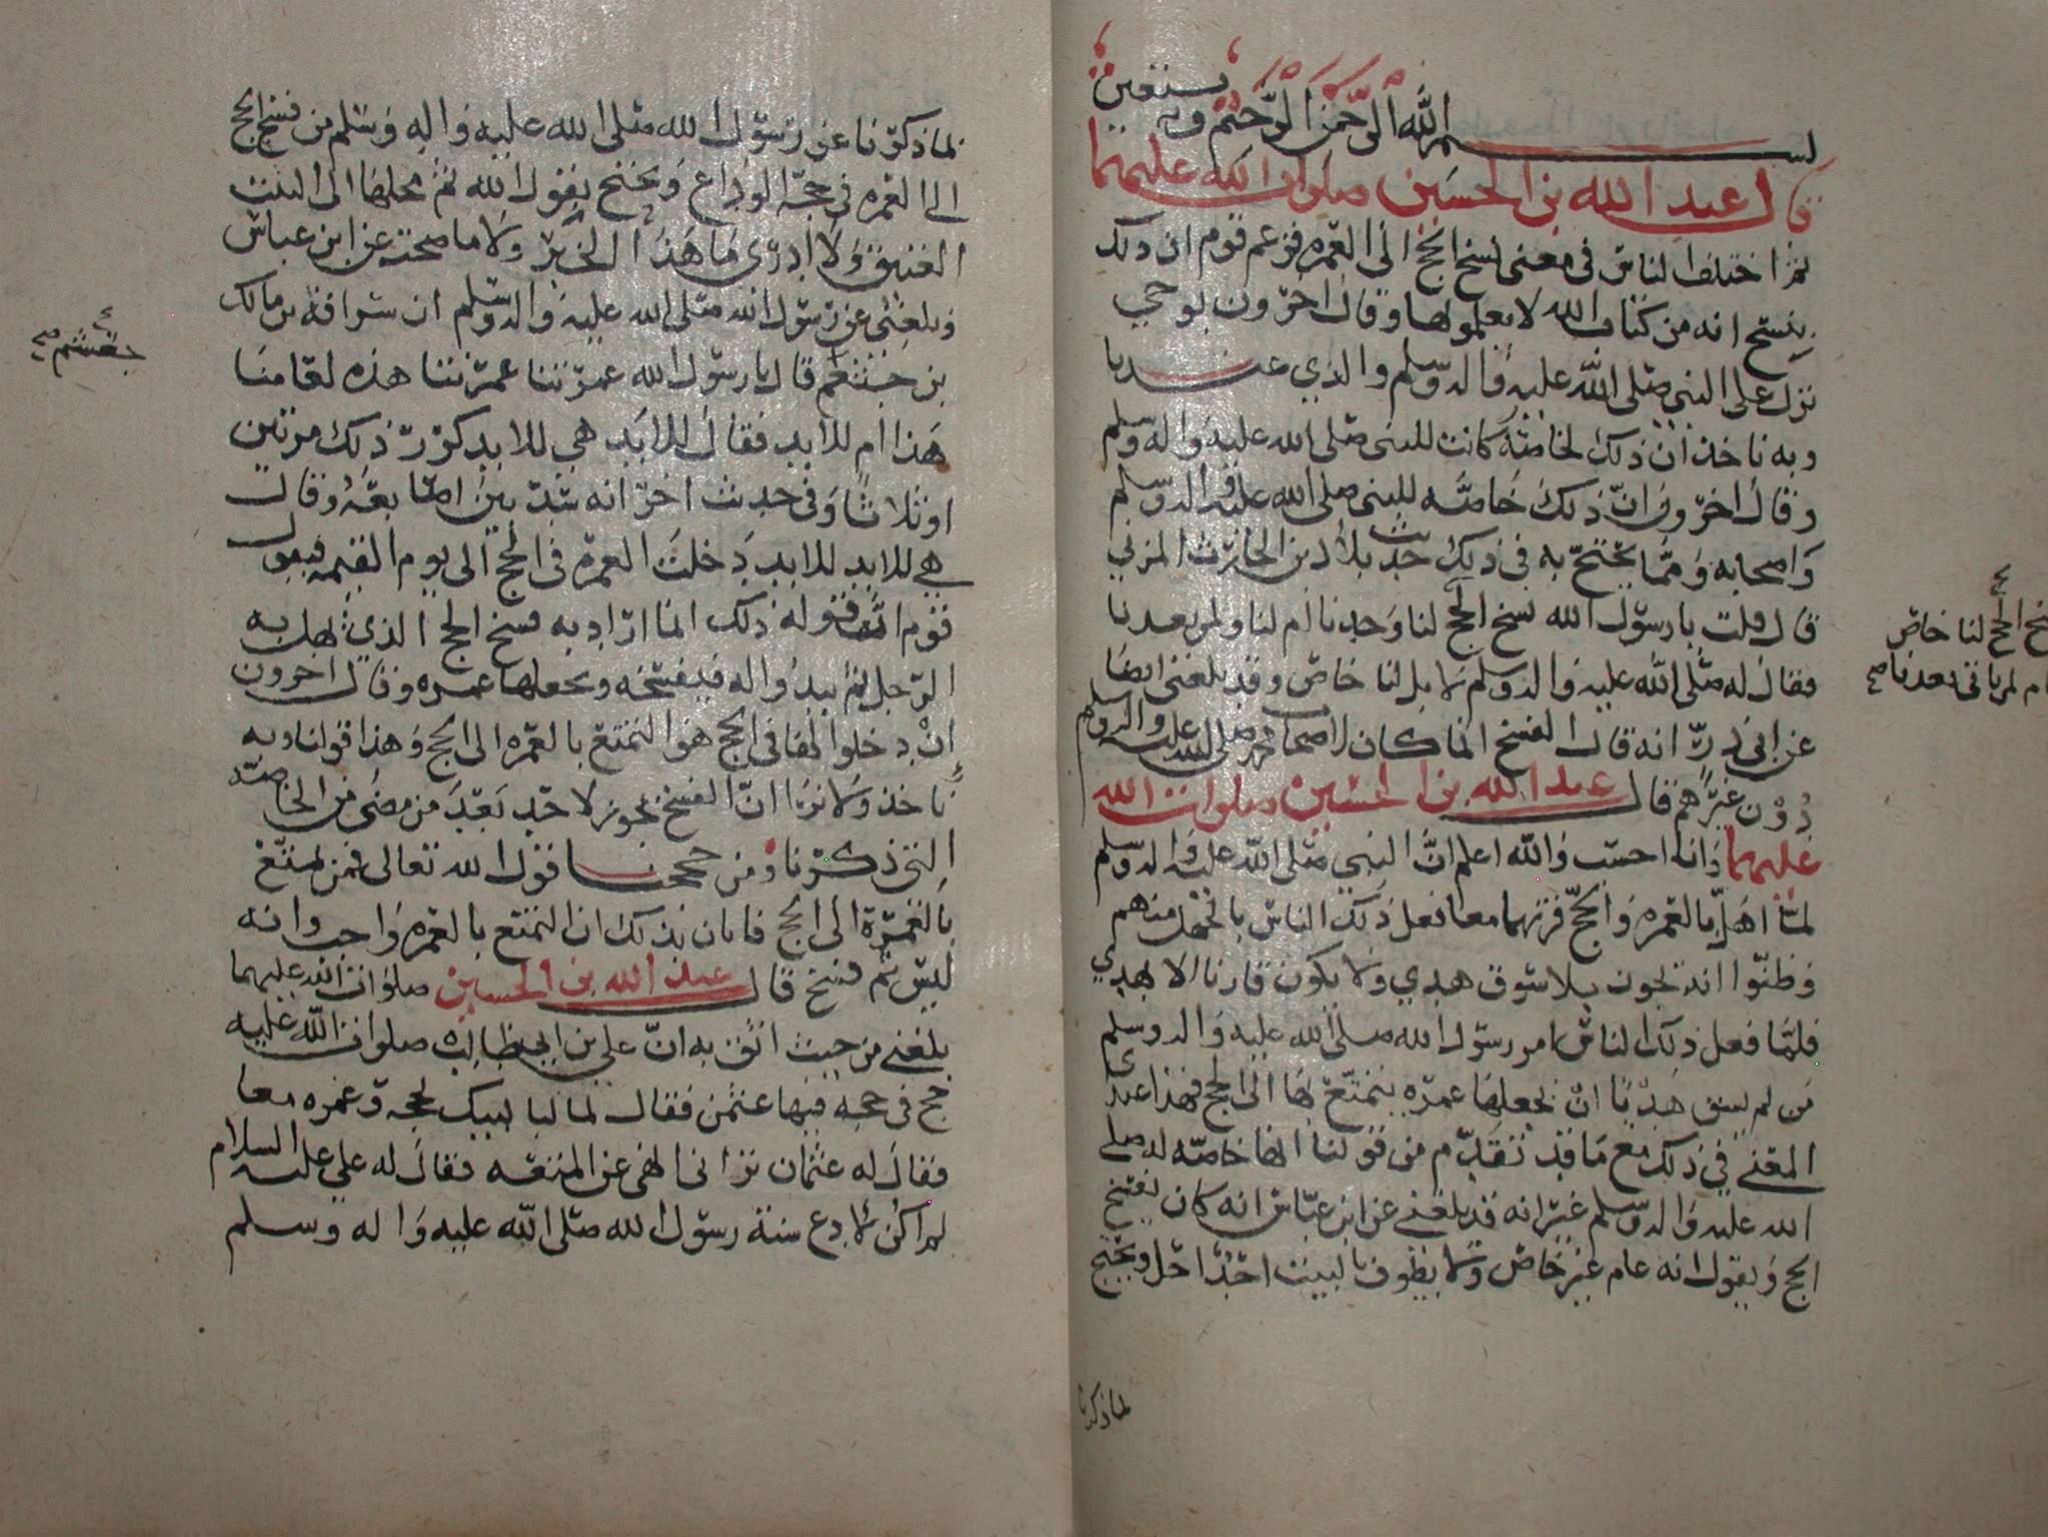 بسم الله الرحمن الرحيم وبه نستعين
قال عبد الله بن الحسين صلوات الله عليهما
ثم اختلف الناس في معنى نسخ الحج الى العمره فزعم قوم ان ذلك
ينسخ انه من كتاب الله لا يعلمولها وقال اخرون بوحي
نزل على النبي صلى الله عليه واله وسلم والذي عندنا
وبه ناخذ ان ذلك لخاصة كانت للنبي صلى الله عليه واله وسلم
وقال اخرون ان ذلك خاصه للنبي صلى الله عليه واله وسلم
واصحابه ومما يحتج به في ذلك حديث بلال بن الحارث المزني
قال قلت يا رسول الله نسخ الحج لنا وحدنا ام لنا ولمن بعدنا
فقال له صلى الله عليه واله وسلم لا بل لنا خاص وقد بلغني ايضا
عن ابي ذر انه قال الفسخ انما كان لاصحاب محمد صلى الله عليه واله وسلم
دون غيرهم قال عبد الله بن الحسين صلوات الله
عليهما وانا احسب والله اعلم ان النبي صلى الله عليه واله وسلم
لما اهل بالعمره والحج قرنهما معا فعل ذلك الناس بالجهل منهم
وظنوا انه يجوز بلا سوق هدي ولا يكون قارنا الا بهدي
فلما فعل ذلك الناس امر رسول الله صلى الله عليه واله وسلم
من لم يسق هديا ان يجعلها عمره يتمتع بها الى الحج فهذا عندي
المعنى في ذلك مع ما قد تقدم من قولنا انها خاصه له صلى
الله عليه واله وسلم غير انه قد بلغني عن ابن عباس انه كان يفسخ
الحج ويقول انه عام غير خاص ولا يطوف بالبيت احد الا حل ويحتج
لما ذكرنا
فسخ الحج لنا خاص
ام لمن ياتي بعدنا صح
لما ذكرنا عن رسول الله صلى الله عليه واله وسلم من فسخ الحج
الى العمره في حجة الوداع ويحتج بقول الله ثم محلها الى البيت
العتيق ولا ادري ما هذا الخبر ولا ما صحته عن ابن عباس
وبلغني عن رسول الله صلى الله عليه واله وسلم ان سراقة بن مالك
بن جشعم قال يا رسول الله عمرتنا عمرتنا هذه لعامنا
هذا ام للابد فقال للابد هي للابد كرر ذلك مرتين
او ثلاثا وفي حديث اخر انه شد بين اصابعه وقال
هي للابد للابد دخلت العمرة في الحج الى يوم القيمه فيقول
قوم انما قوله ذلك انما اراد به فسخ الحج الذي يهل به
الرجل ثم يبدوا له فيفسخه ويجعلها عمره وقال اخرون
ان دخولها في الحج هو التمتع بالعمره الى الحج وهذا قولنا وبه
ناخذ ولا نرا ان الفسخ يجوز لاحد بعد من مضى من الخاصة
التي ذكرنا ومن حججنا قول الله تعالى فمن تمتع
بالعمرة الى الحج فابان بذلك ان التمتع بالعمره واجب وانه
ليس ثم فسخ قال عبد الله بن الحسين صلوات الله عليهما
بلغني من حيث اثق به ان علي بن ابي طالب صلوات الله عليه
حج في حجه فيها عثمن فقال لما لبا لبيك بحجه وعمره معا
فقال له عثمان تراني انهى عن المتعه فقال له علي عليه السلام
لم اكن لادع سنة رسول الله صلى الله عليه واله وسلم
جعشم صح